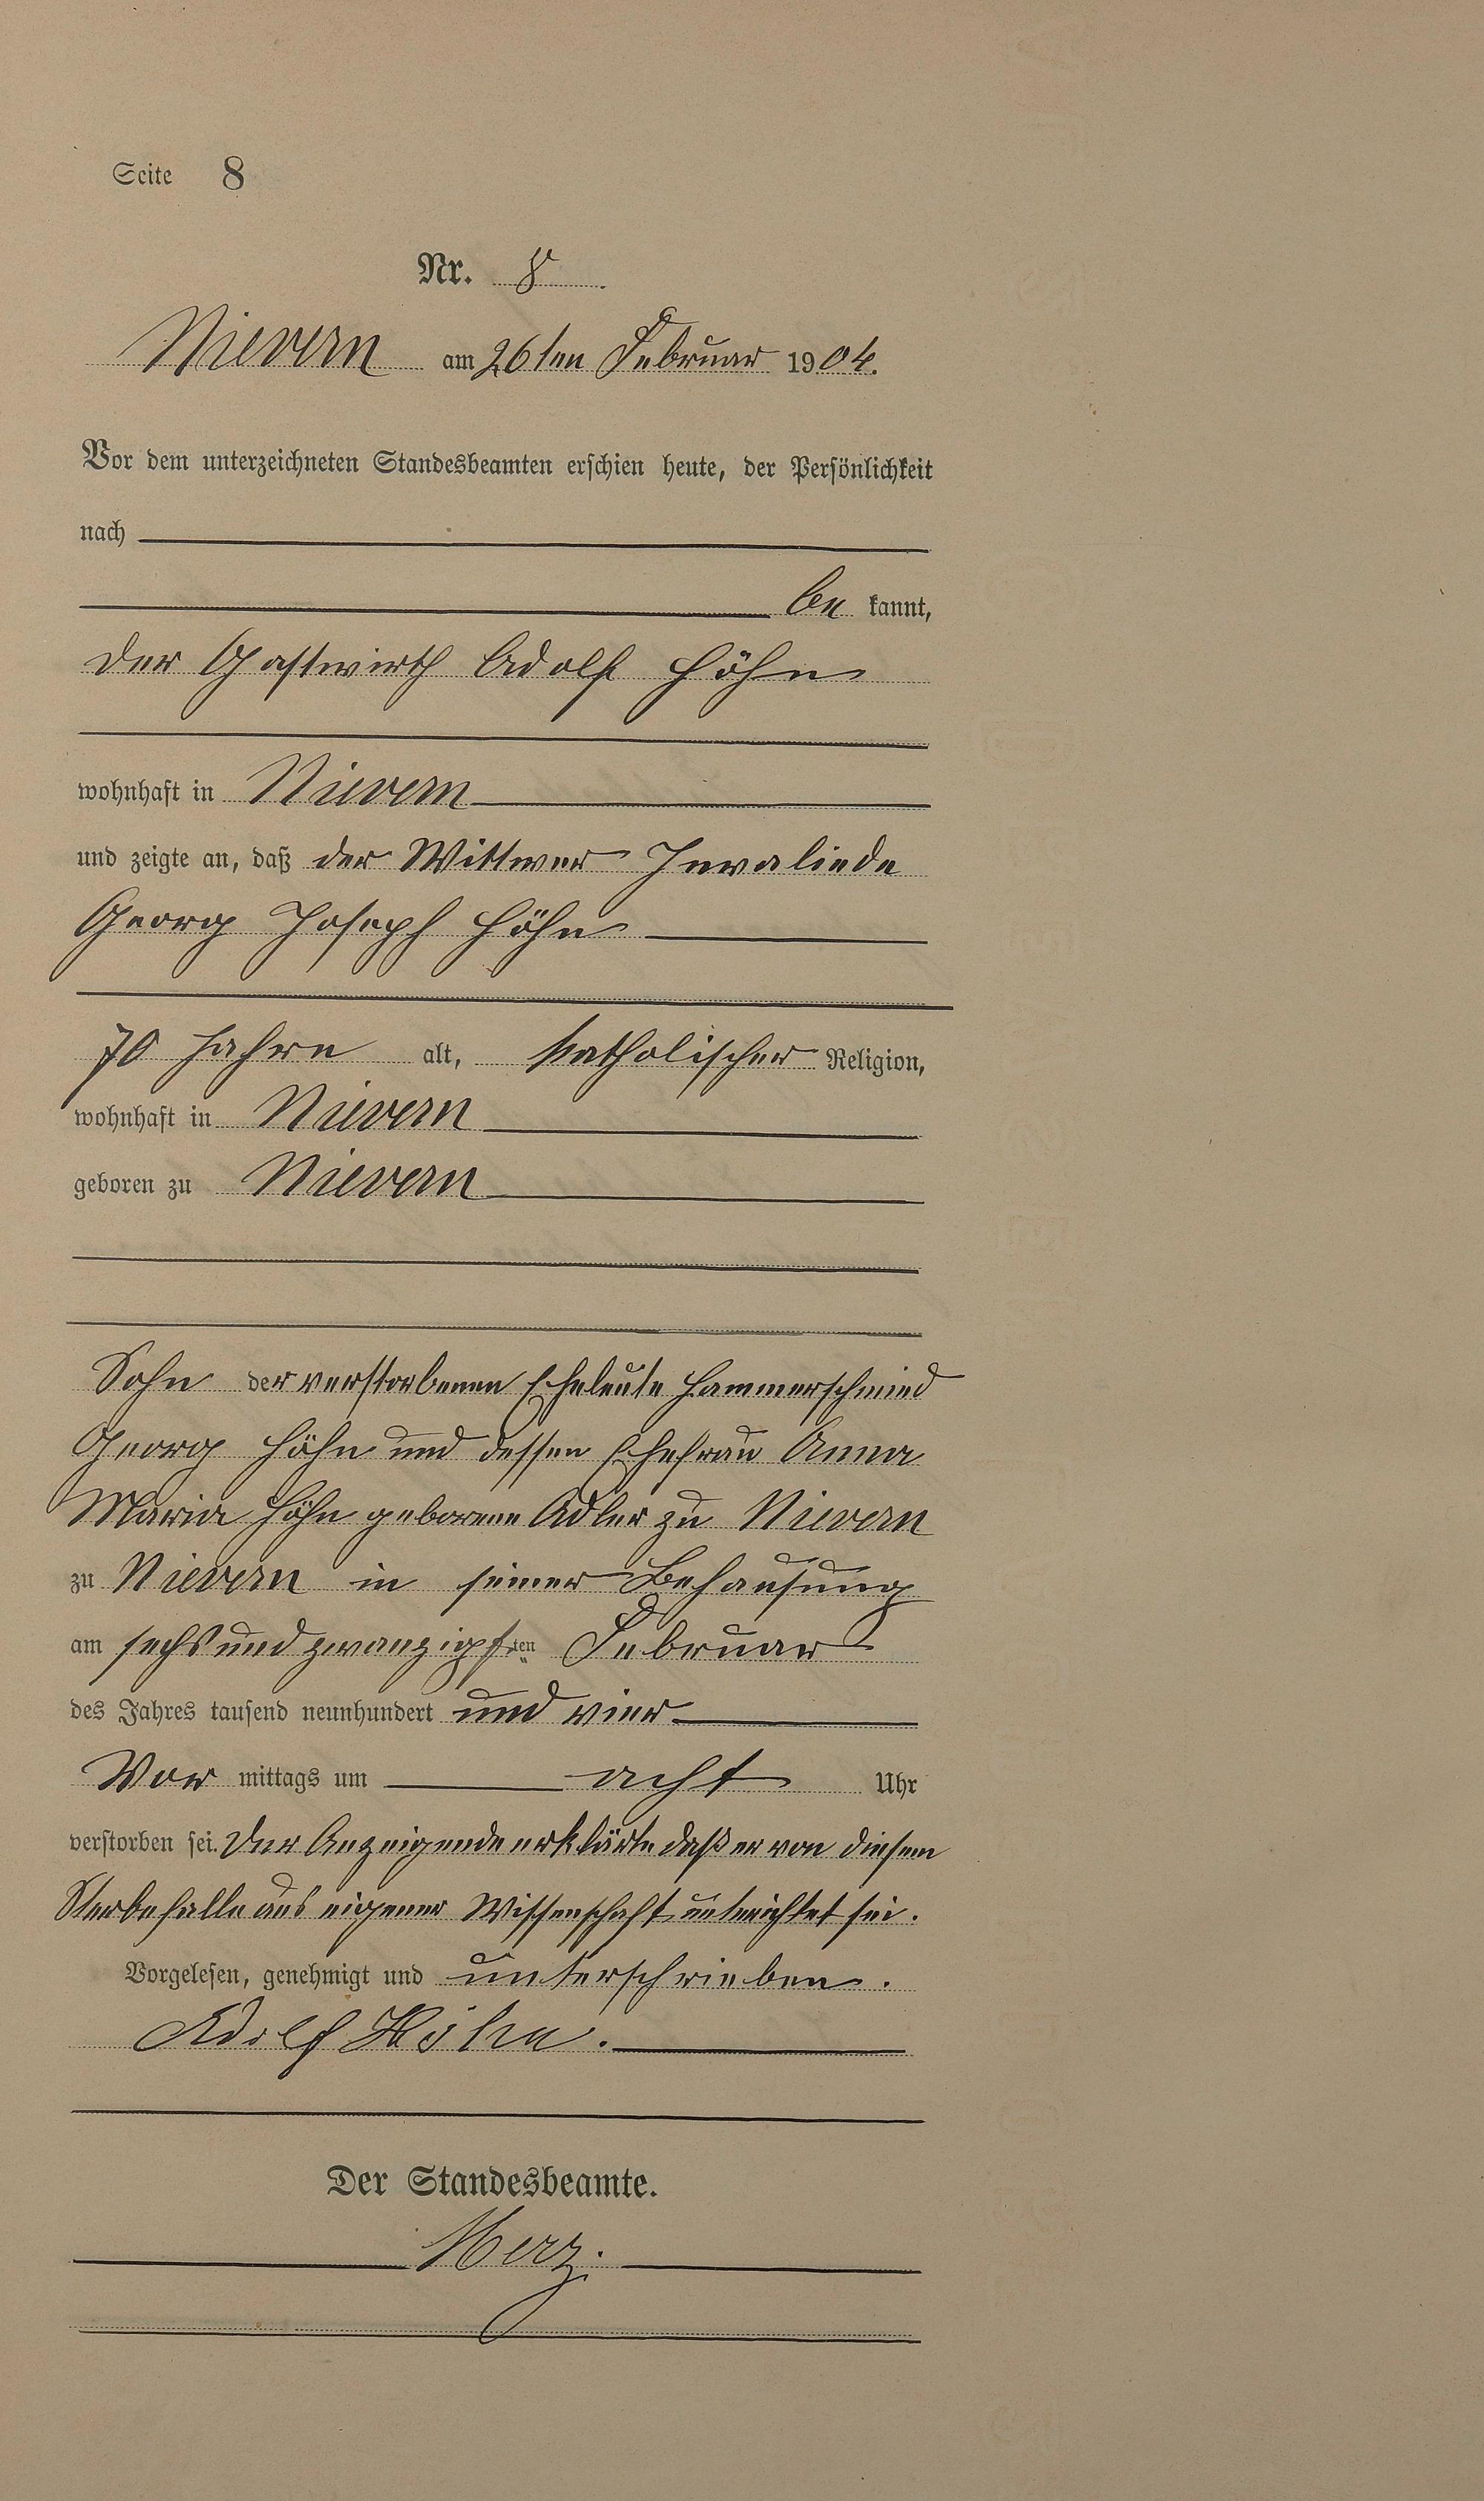 Seite 8
Nr. 8
Nievern am 26ten Februar 1904.
Vor dem unterzeichneten Standesbeamten erschien heute, der Persönlichkeit
nach
be kannt,
der Gastwirth Adolf Höhn
wohnhaft in Nievern
und zeigte an, daß der Wittwer Invaliede
Georg Joseph Höhn
70 Jahre alt, katholischer Religion,
wohnhaft in Nievern
geboren zu Nievern
Sohn der verstorbenen Eheleute Hammerschmied
Georg Höhn und dessen Ehefrau Anna
Maria Höhn geborene Adler zu Nievern
zu Nievern in seiner Behausung
am sechsundzwanzigsten Februar
des Jahres tausend neunhundert und vier
Vor mittags um acht Uhr
verstorben sei. Der Anzeigende erklärte daß er von diesem
Sterbefalle aus eigener Wissenschaft unterichtet sei.
Vorgelesen, genehmigt und unterschrieben.
Adolf Höhn.
Der Standesbeamte.
Merz.